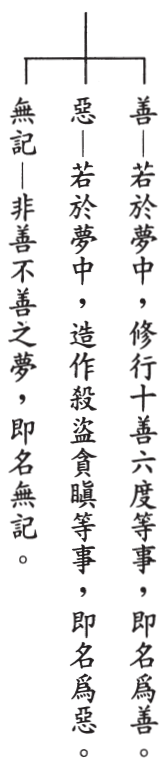 善—若於夢中，修行十善六度等事，即名爲善。
惡—若於夢中，造作殺盜貪瞋等事，即名爲惡。
無記—非善不善之夢，即名無記。